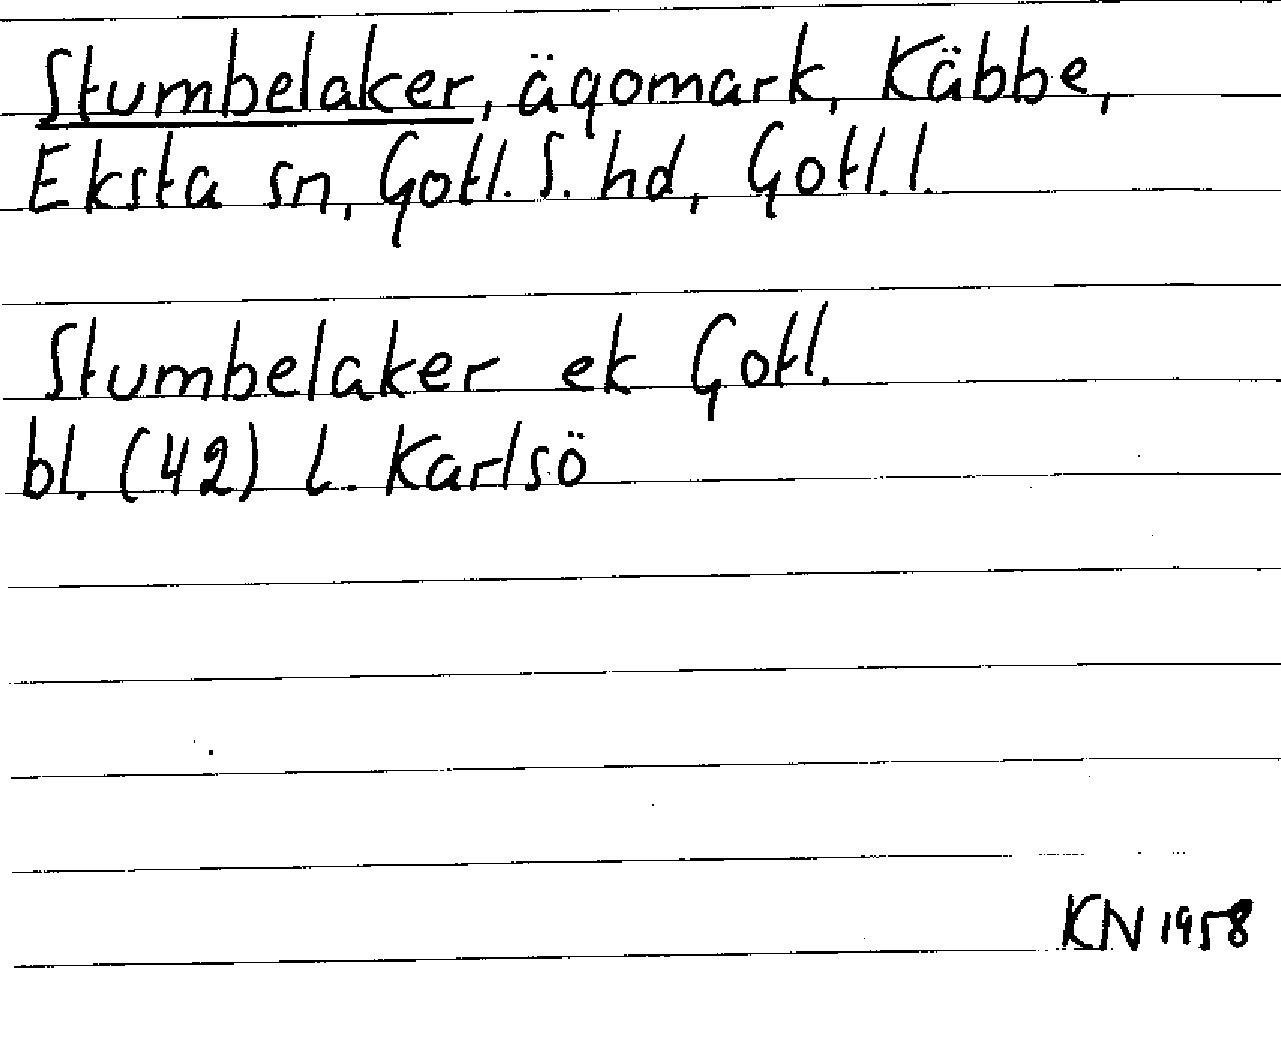 Stumbelaker, ägomark, Käbbe,
Eksta sn, Gotl. S. hd, Gotl. l.
Stumbelaker ek Gotl.
bl. (42) L. Karlsö
KN 1958